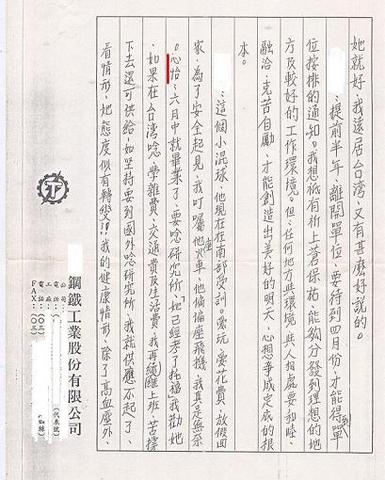 她就好，我遠居台湾，又有甚麼好說的。
：提前半年，離開單位，要待到四月份才能得單
位按排的通知。我想祗有祈上蒼保祐，能夠分發到理想的地
方及較好的工作環境。但，任何地方與環境，與人相處要和睦、
融洽、克苦自勵，才能創造出美好的明天，心想事成定底的根
本。
：這個小混球，他現在在南部受訓。愛玩，愛花費，放假回
家，為了安全起見，我叮囑他座火車，他偏偏座飛機，我真是無奈
。心怡：六月中就畢業了，要唸研究所，她已經考了托福，我勸她
，如果在台湾唸，學雜費、交通費及生活費，我再繼續上班，苦撐
下去還可供給，如堅持要到國外唸研究所，我就供應不起了、
看情形，她態度似有轉變！！我的健康情形，除了高血壓外、
鋼鐵工業股份有限公司
公司：
工廠：
電話：(０２)
電話：(０３)
FAX：(０３)
(代表號)